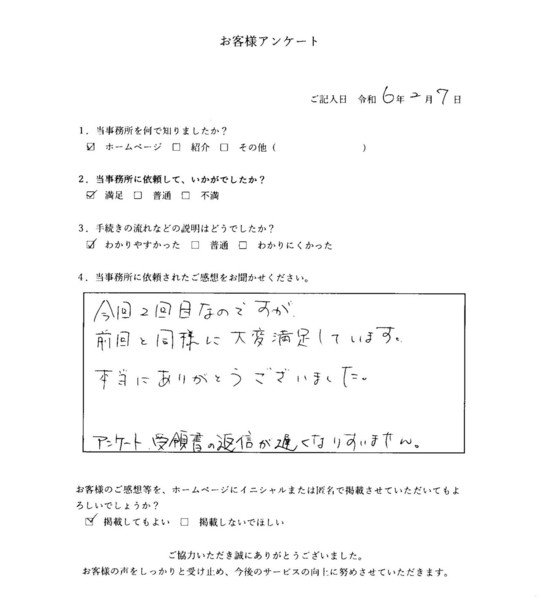 お客様アンケート
ご記入日 令和 6年 2月 7日
1．当事務所を何で知りましたか？
☑ ホームページ □ 紹介 □ その他（ ）
2．当事務所に依頼して、いかがでしたか？
☑ 満足 □ 普通 □ 不満
3．手続きの流れなどの説明はどうでしたか？
☑ わかりやすかった □ 普通 □ わかりにくかった
4．当事務所に依頼されたご感想をお聞かせください。
今回2回目なのですが、
前回と同様に大変満足しています。
本当にありがとうございました。
アンケート、受領書の返信が遅くなりすいません。
お客様のご感想等を、ホームページにイニシャルまたは匿名で掲載させていただいてもよ
ろしいでしょうか？
☑ 掲載してもよい □ 掲載しないでほしい
ご協力いただき誠にありがとうございました。
お客様の声をしっかりと受け止め、今後のサービスの向上に努めさせていただきます。